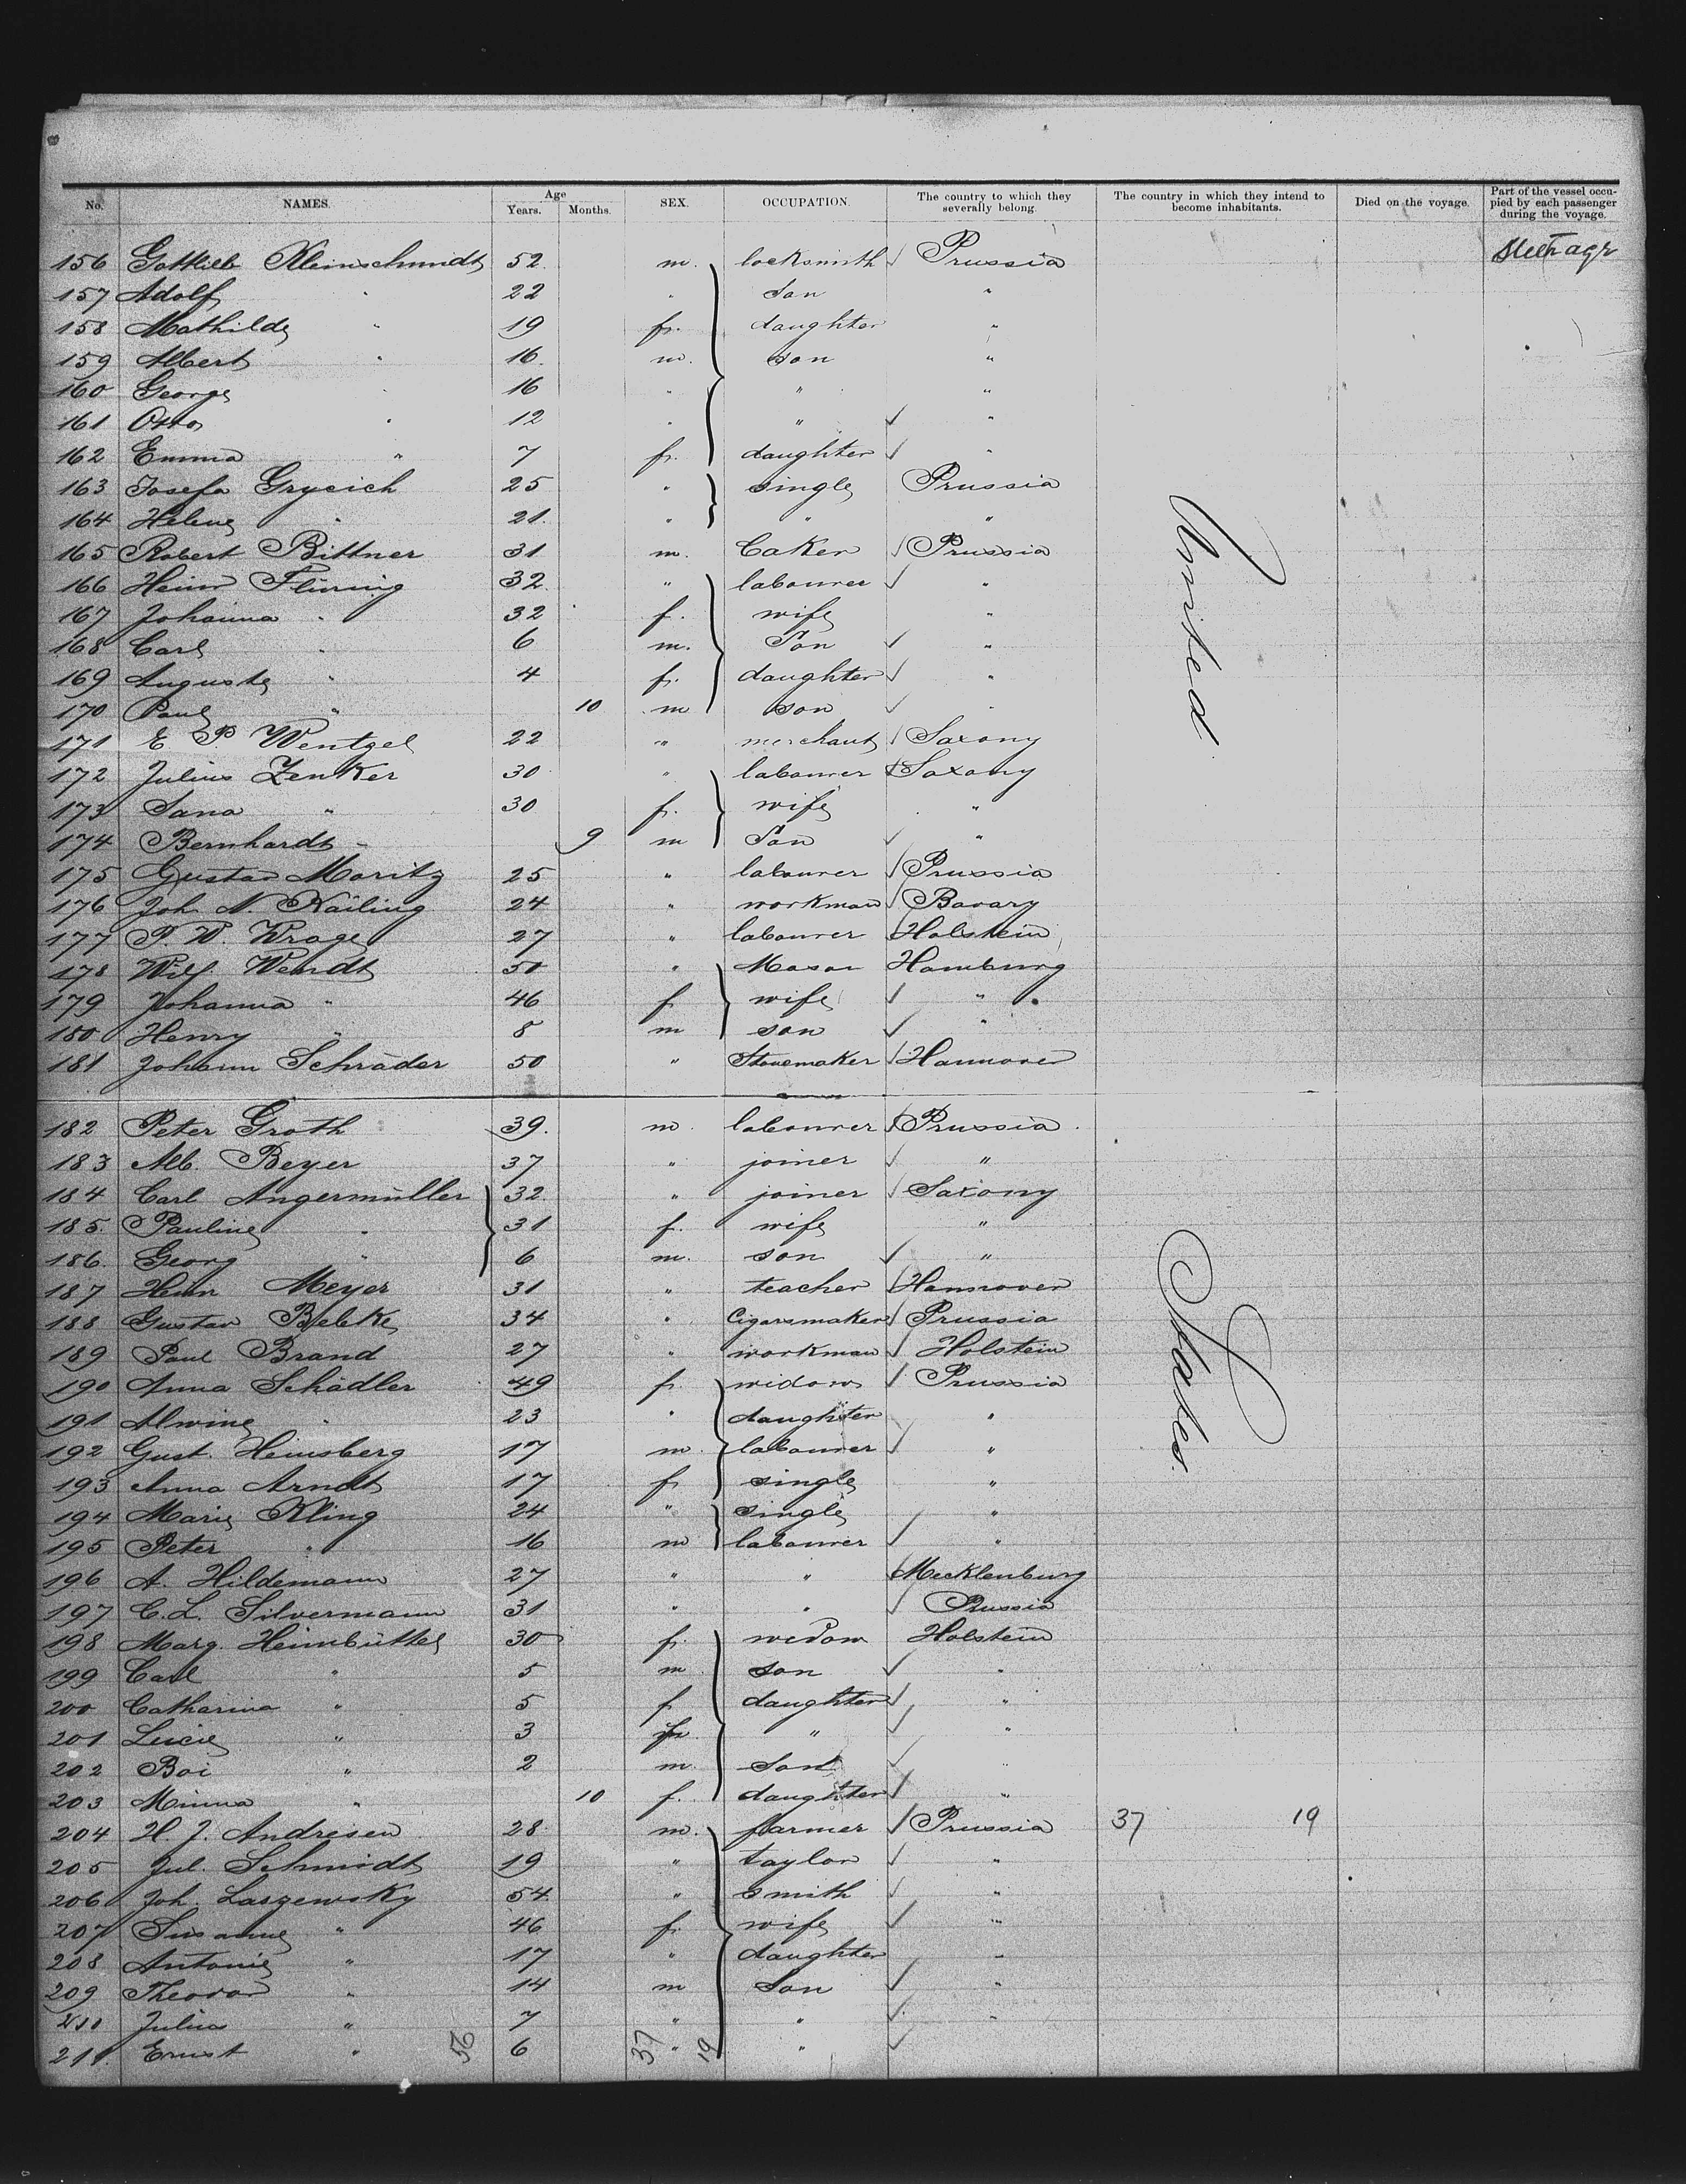 No. NAMES. Age Years. Months. SEX. OCCUPATION. The country to which they severally belong. The country in which they intend to become inhabitants. Died on the voyage. Part of the vessel occupied by each passenger during the voyage.
156 Gottlieb Kleinschmidt 52 m. locksmith Prussia Steerage
157 Adolf " 22 " Son "
158 Mathilde " 19 f. daughter "
159 Albert " 16 m. son "
160 George " 16 " " "
161 Otto " 12 " " "
162 Emma " 7 f. daughter "
163 Josefa Grycich 25 " single Prussia
164 Helene " 21 " " "
165 Robert Bittner 31 m. baker Prussia
166 Heinr Flüring 32 " labourer "
167 Johanna " 32 f. wife "
168 Carl " 6 m. Son "
169 Auguste " 4 f. daughter "
170 Paul " 10 m son "
171 E. P. Wentzel 22 " merchant Saxony
172 Julius Zenker 30 " labourer Saxony
173 Sana " 30 f. wife "
174 Bernhardt " 9 m Son "
175 Gustav Moritz 25 " labourer Prussia
176 Joh. N. Käiling 24 " workman Bavary
177 P. W. Krage 27 " labourer Holstein
178 Wilh. Wendt 50 " Mason Hamburg
179 Johanna " 46 f wife "
180 Henry " 8 m son "
181 Johann Schrader 50 " Stovemaker Hannover
182 Peter Groth 39. m. labourer Prussia
183 Alb. Beyer 37 " joiner "
184 Carl Angermüller 32 " joiner Saxony
185. Pauline " 31 f. wife "
186. Georg " 6 m. son "
187 Heinr Meyer 31 " teacher Hannover
188 Gustav Belke 34 " Cigarsmaker Prussia
189 Paul Brand 27 " workman Holstein
190 Anna Schädler 49 f. widow Prussia
191 Alwine " 23 " daughter "
192 Gust. Heinsberg 17 m. labourer "
193 Anna Arndt 17 f single "
194 Marie Kling 24 " single "
195 Peter " 16 m labourer "
196 A. Hildemann 27 " " Mecklenburg
197 C. L. Silvermann 31 " " Prussia
198 Marg. Heimbüttel 30 f. widow Holstein
199 Carl " 5 m son "
200 Catharina " 5 f daughter "
201 Lucie " 3 f " "
202 Boi " 2 m. Son "
203 Minna " 10 f. daughter "
204 H. J. Andresen 28 m. farmer Prussia 37 19
205 Jul. Schmidt 19 " taylor "
206 Joh. Laszewsky 54 " smith "
207 Susanne " 46 f. wife "
208 Antonie " 17 " daughter "
209 Theodor " 14 m Son "
210 Julius " 7 " " "
211. Ernst " 6 " "
United States.
56 37 19